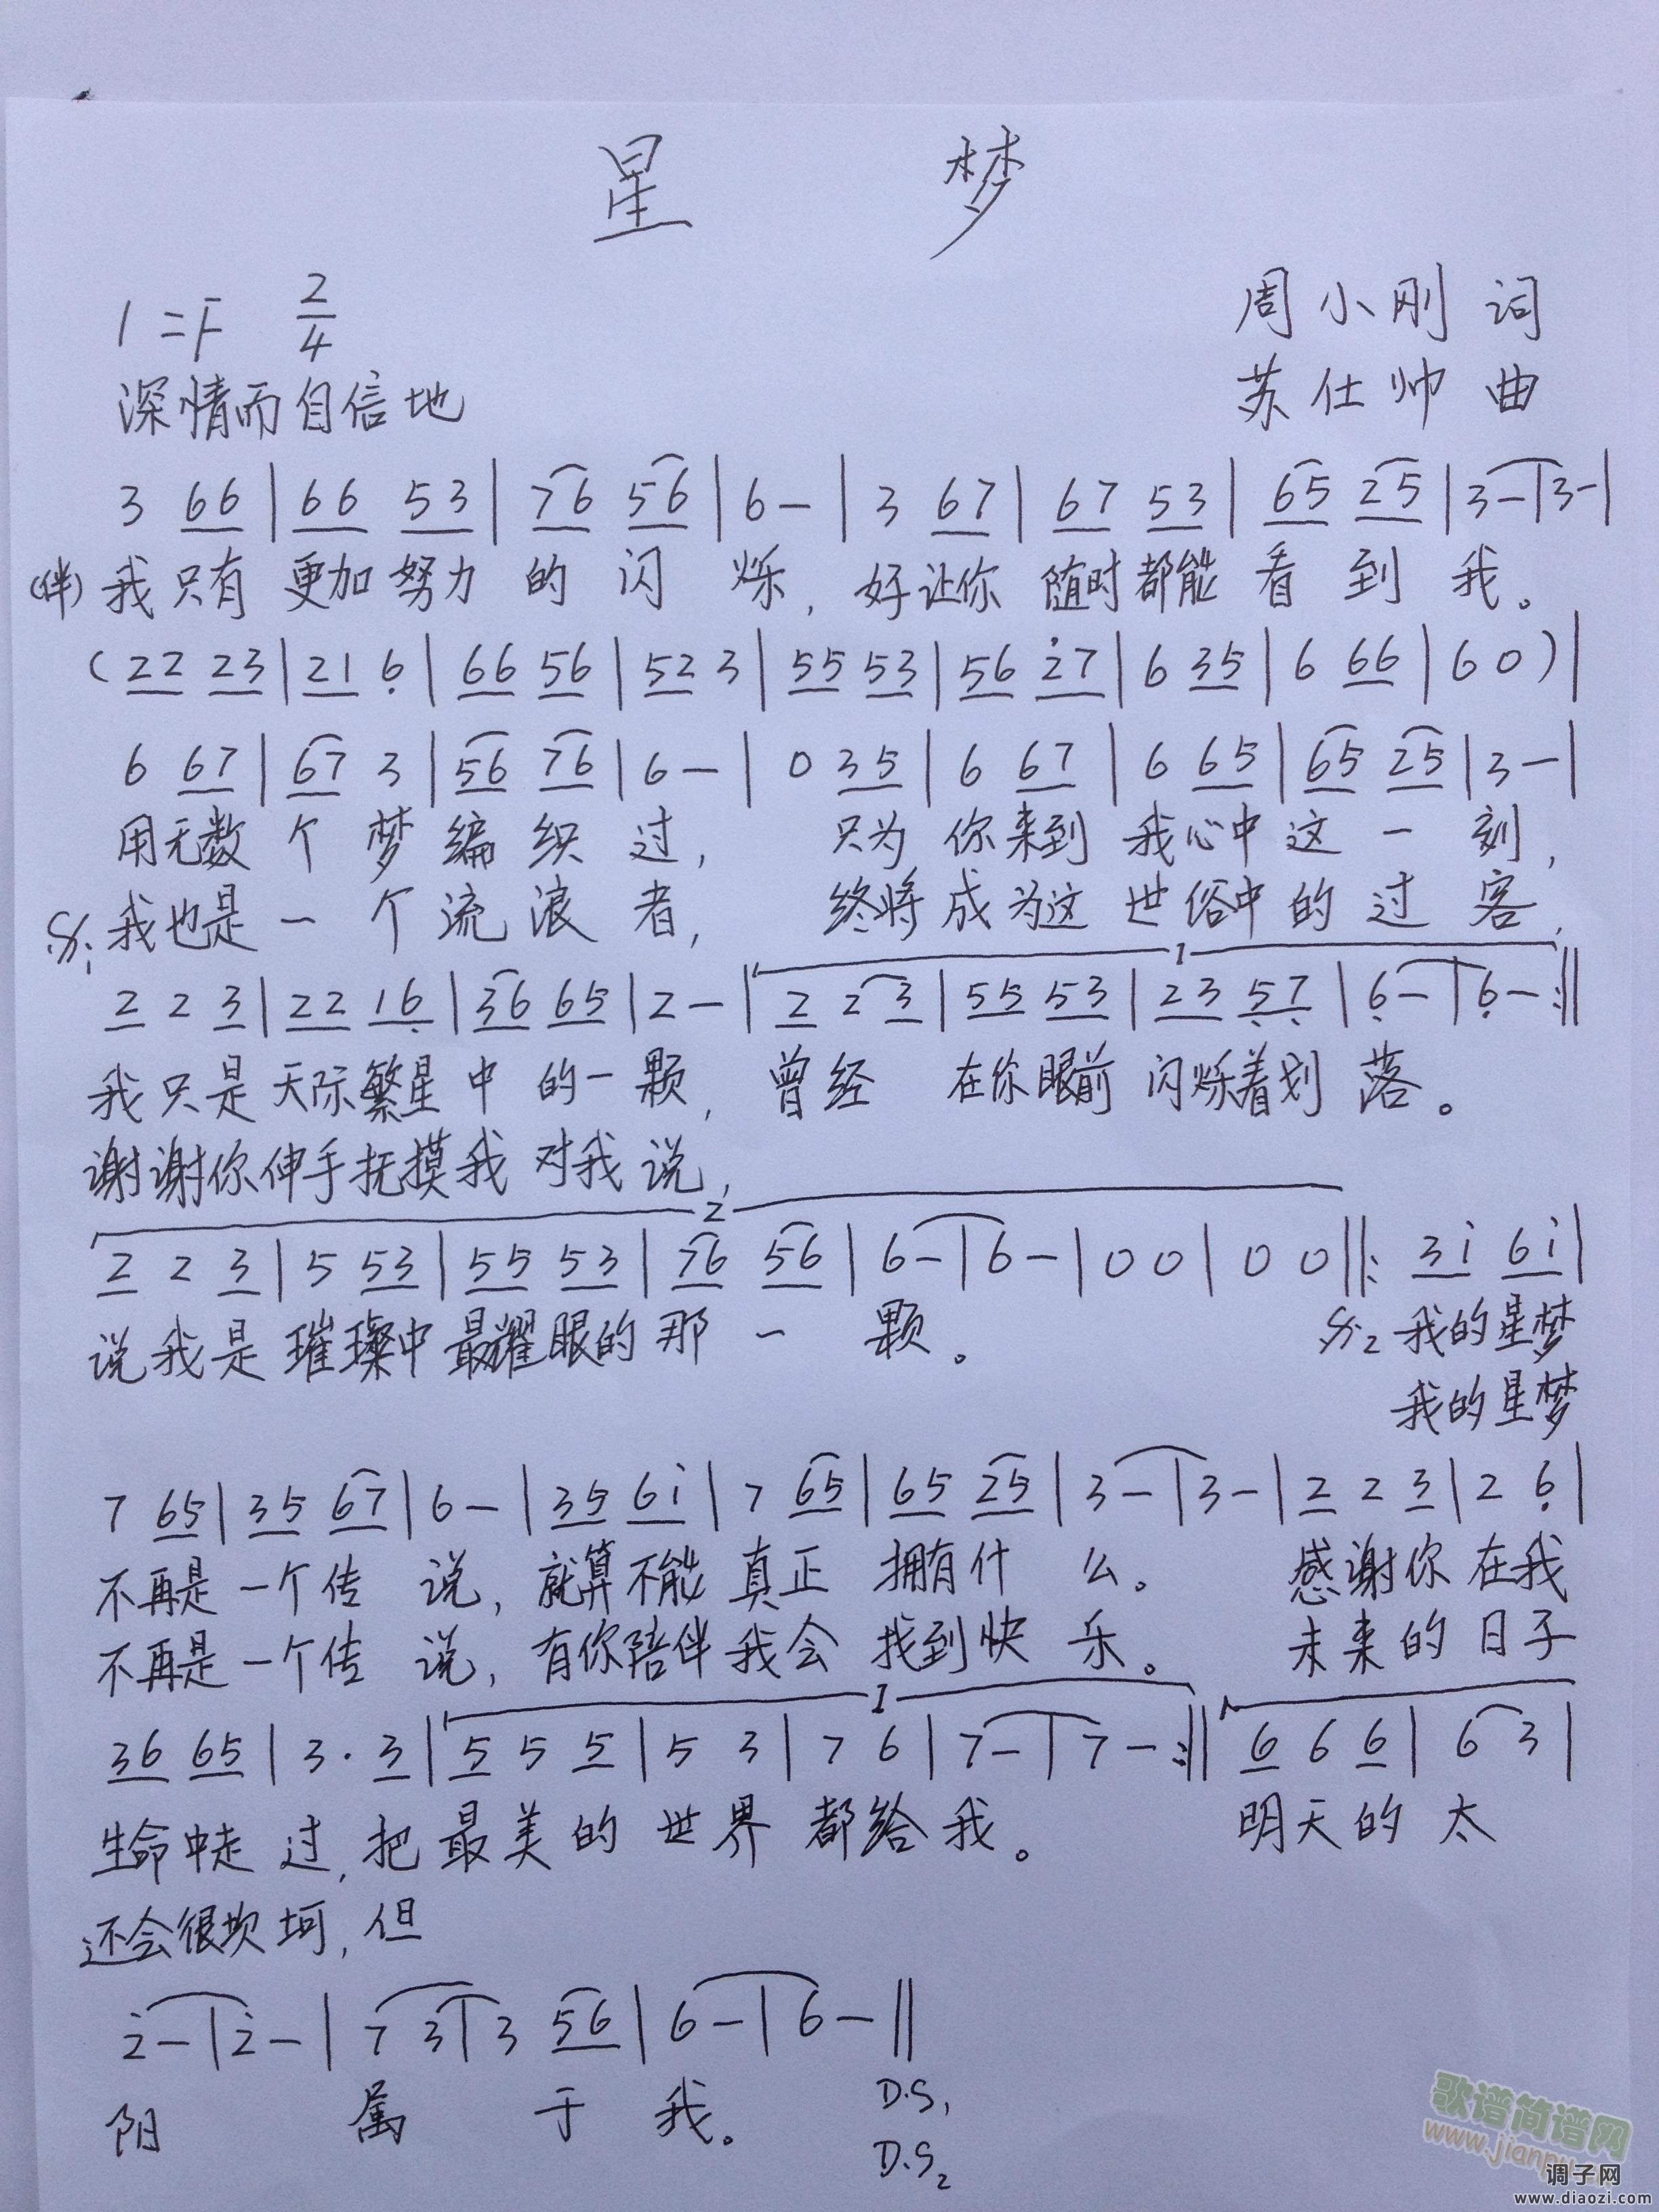 星 梦
1=F 2/4
周小刚 词
深情而自信地
苏仕帅 曲
3 66 | 66 53 | 76 56 | 6 – | 3 67 | 67 53 | 65 25 | 3 – | 3 – |
(伴) 我只有 更加努力 的 闪 烁, 好让你 随时都能 看 到 我。
( 22 23 | 21 6̣ | 66 56 | 52 3 | 55 53 | 56 2̇7 | 6 35 | 6 66 | 6 0 ) |
6 67 | 67 3 | 56 76 | 6 – | 0 35 | 6 67 | 6 65 | 65 25 | 3 – |
用无数 个 梦 编 织 过, 只为 你来到 我心中 这 一 刻,
𝄋1 我也是 一 个 流 浪 者, 终将 成为这 世俗中 的 过 客,
2 2 3 | 22 16̣ | 36 65 | 2 – | 1 2 2 3 | 55 53 | 23 5̣7̣ | 6̣ – | 6̣ – :||
我 只 是 天际繁星 中 的一 颗, 曾 经 在你眼前 闪烁着划 落。
谢谢你伸手抚摸我 对我 说,
2
2 2 3 | 5 53 | 55 53 | 76 56 | 6 – | 6 – | 0 0 | 0 0 ||: 31̇ 61̇ |
说 我 是 璀璨中 最耀眼的 那 一 颗。 𝄋2 我的星梦
我的星梦
7 65 | 35 67 | 6 – | 35 61̇ | 7 65 | 65 25 | 3 – | 3 – | 2 2 3 | 2 6̣ |
不再是 一个传 说, 就算不能 真正 拥有什 么。 感谢你 在我
不再是 一个传 说, 有你陪伴 我会 找到快 乐。 未来的 日子
1
36 65 | 3· 3 | 5 5 5 | 5 3 | 7 6 | 7 – | 7 – :|| 6 6 6 | 6 3 |
生命中走 过, 把 最美的 世界 都给 我。 明天的 太
还会很坎坷, 但
2̇ – | 2̇ – | 7 3 | 3 56 | 6 – | 6 – ||
阳 属 于 我。 D.S.1
D.S.2
歌谱简谱网
www.jianpu
调子网
www.diaozi.com